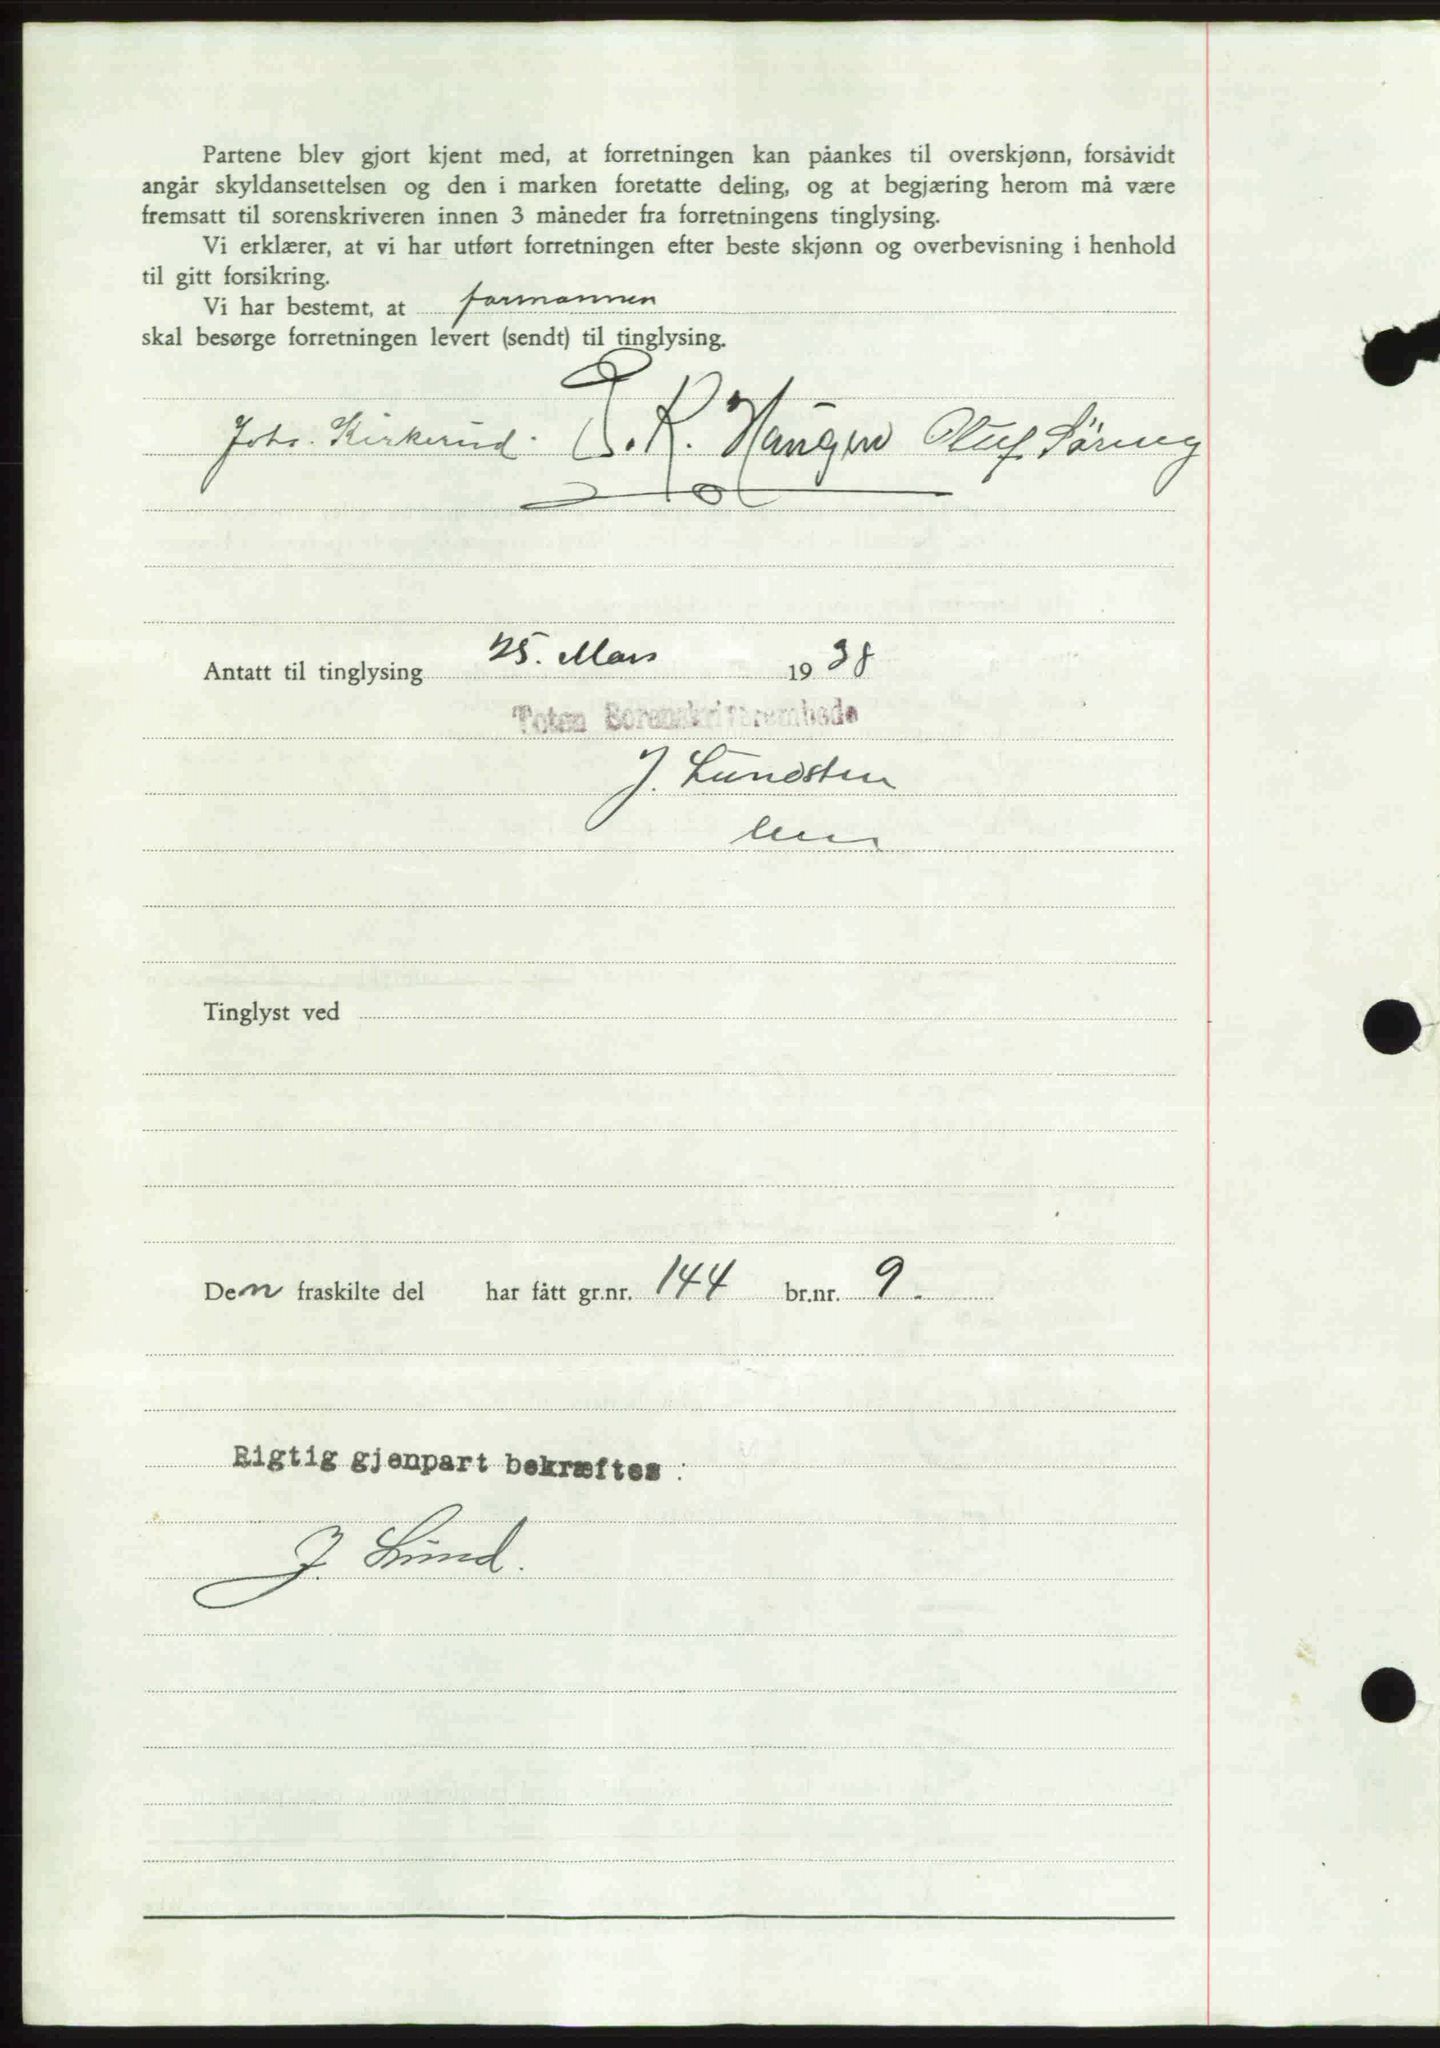 Partene blev gjort kjent med, at forretningen kan påankes til overskjønn, forsåvidt
angår skyldansettelsen og den i marken foretatte deling, og at begjæring herom må være
fremsatt til sorenskriveren innen 3 måneder fra forretningens tinglysing.
Vi erklærer, at vi har utført forretningen efter beste skjønn og overbevisning i henhold
til gitt forsikring.
Vi har bestemt, at formannen
skal besørge forretningen levert (sendt) til tinglysing.
Johs. Kirkerud. P. R. Haugen Oluf
Antatt til tinglysing 25. Mars 1938
Toten Sorenskriverembede
J. Lundsten
Tinglyst ved
Den fraskilte del har fått gr.nr. 144 br.nr. 9.
Rigtig gjenpart bekræftes:
J. Lund.